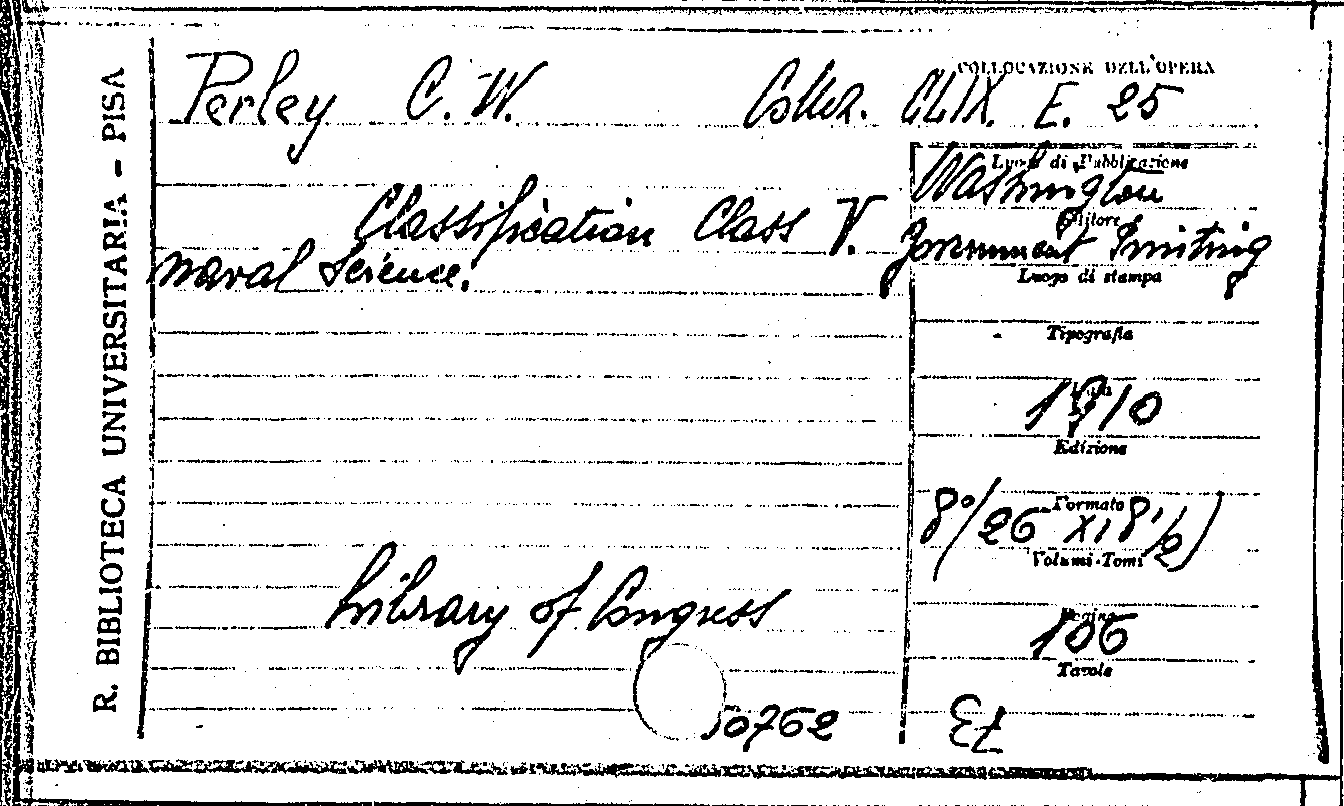 R. BIBLIOTECA UNIVERSITARIA - PISA
COLLOCAZIONE DELL'OPERA
Perley C. W. Collez. CLIX. E. 25
Luogo di Pubblicazione
Washington
Classification Class V.
Editore
Government Printing
naval Science.
Luogo di stampa
Tipografia
1910
Edizione
Formato
8°(26 x 18 1/2)
Volumi-Tomi
Library of Congress
Pagine
106
Tavole
50762
73